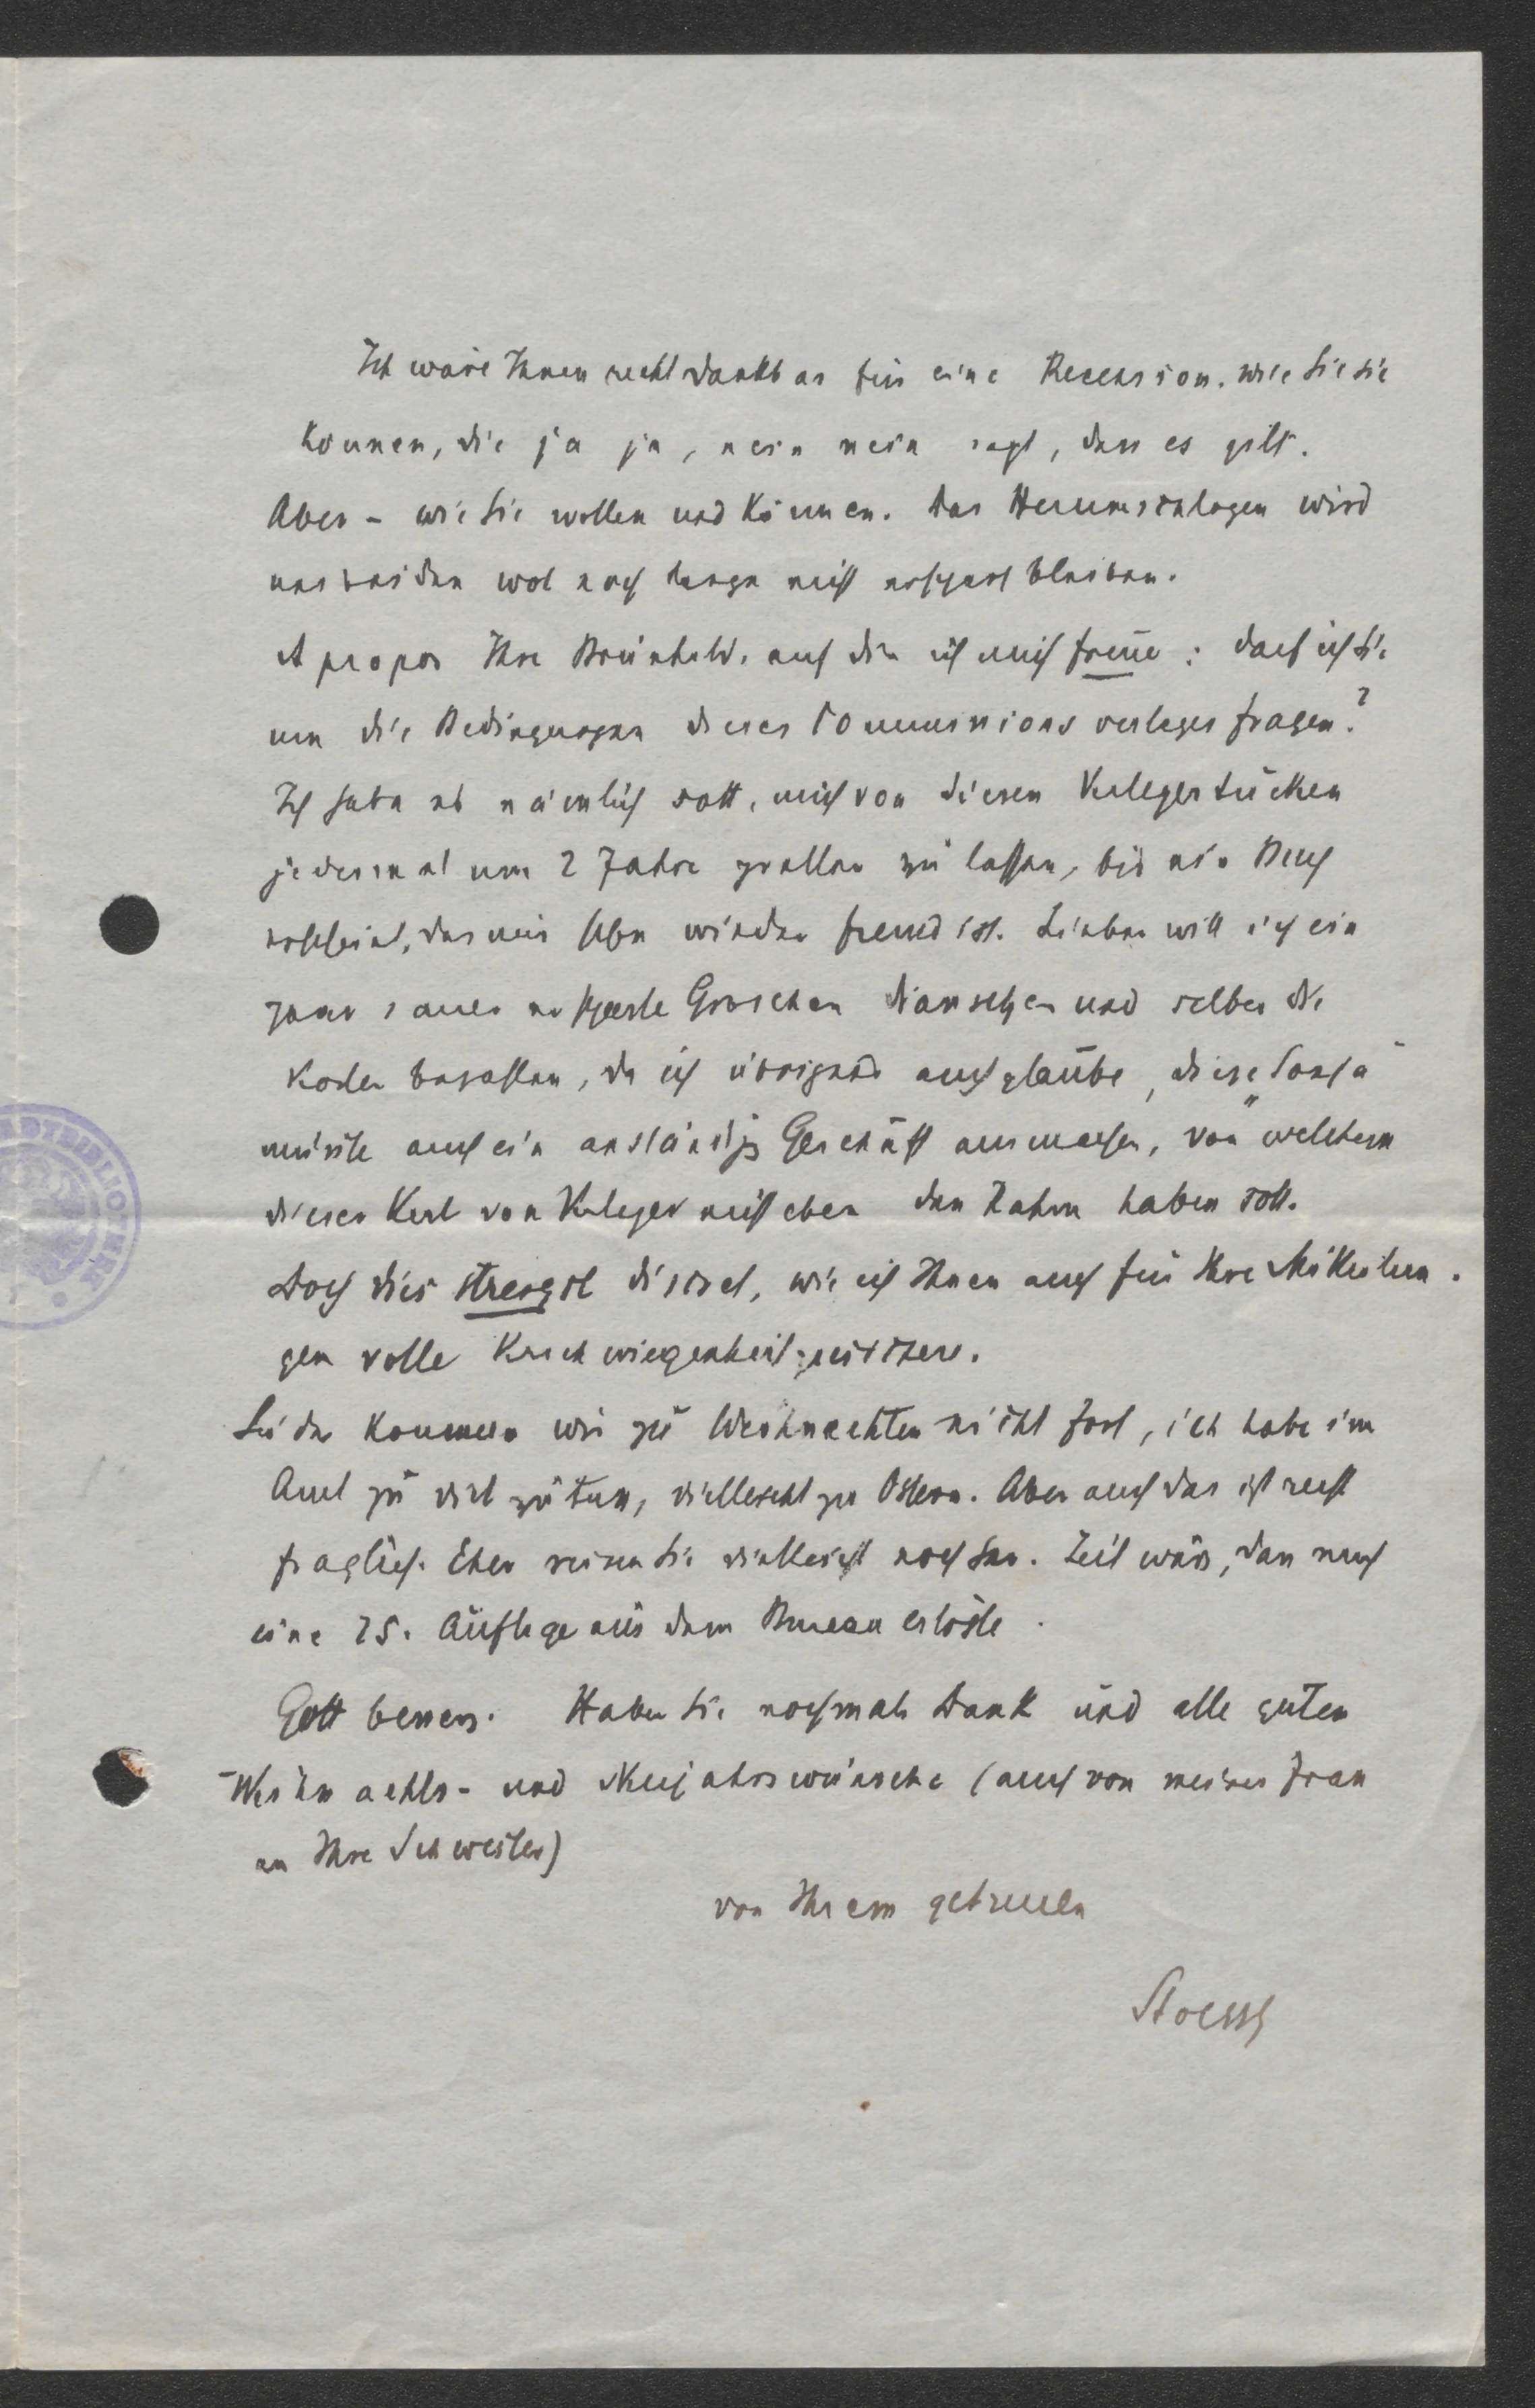 Ich wäre Ihnen recht dankbar für eine Recension, wie Sie sie
können, die ja ja, nein nein sagt, dass es gilt.
Aber – wie Sie wollen und können. Das Herumschlagen wird
uns beiden wol noch lange nicht erspart bleiben.
A propos Ihre Brünhild, auf die ich mich freue: darf ich Sie
um die Bedingungen dieses Commissionsverlegers fragen?
Ich habe es nämlich satt, mich von diesen Verlegertücken
jedesmal um 2 Jahre prellen zu lassen, bis ein Buch
erscheint, das mir schon wieder fremd ist. Lieber will ich ein
paar sauer ersparte Groschen dransetzen und selber die
Kosten bezahlen, da ich übrigens auch glaube, diese „Sonja“
müsste auch ein anständiges Geschäft ausmachen, von welchem
dieser Kerl von Verleger nicht eben den Rahm haben soll.
Doch dies strengst discret, wie ich Ihnen auch für Ihre Mitteilun-
gen volle Verschwiegenheit zusichere.
Leider kommen wir zu Weihnachten nicht fort, ich habe im
Amt zu viel zu tun, vielleicht zu Ostern. Aber auch das ist recht
fraglich. Eher reisen Sie vielleicht noch her. Zeit wärs, dass auch
eine 25. Auflage aus dem Bureau erlöste.
Gott bessers. Haben Sie nochmals Dank und alle guten
Weihnachts- und Neujahrswünsche (auch von meiner Frau
an Ihre Schwester)
von Ihrem getreuen
Stoessl